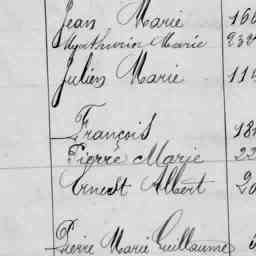 Jean Marie 166
Mathurin Marie 232
Julien Marie 114
François 184
Pierre Marie 23
Ernest Albert 20
Pierre Marie Guillaume